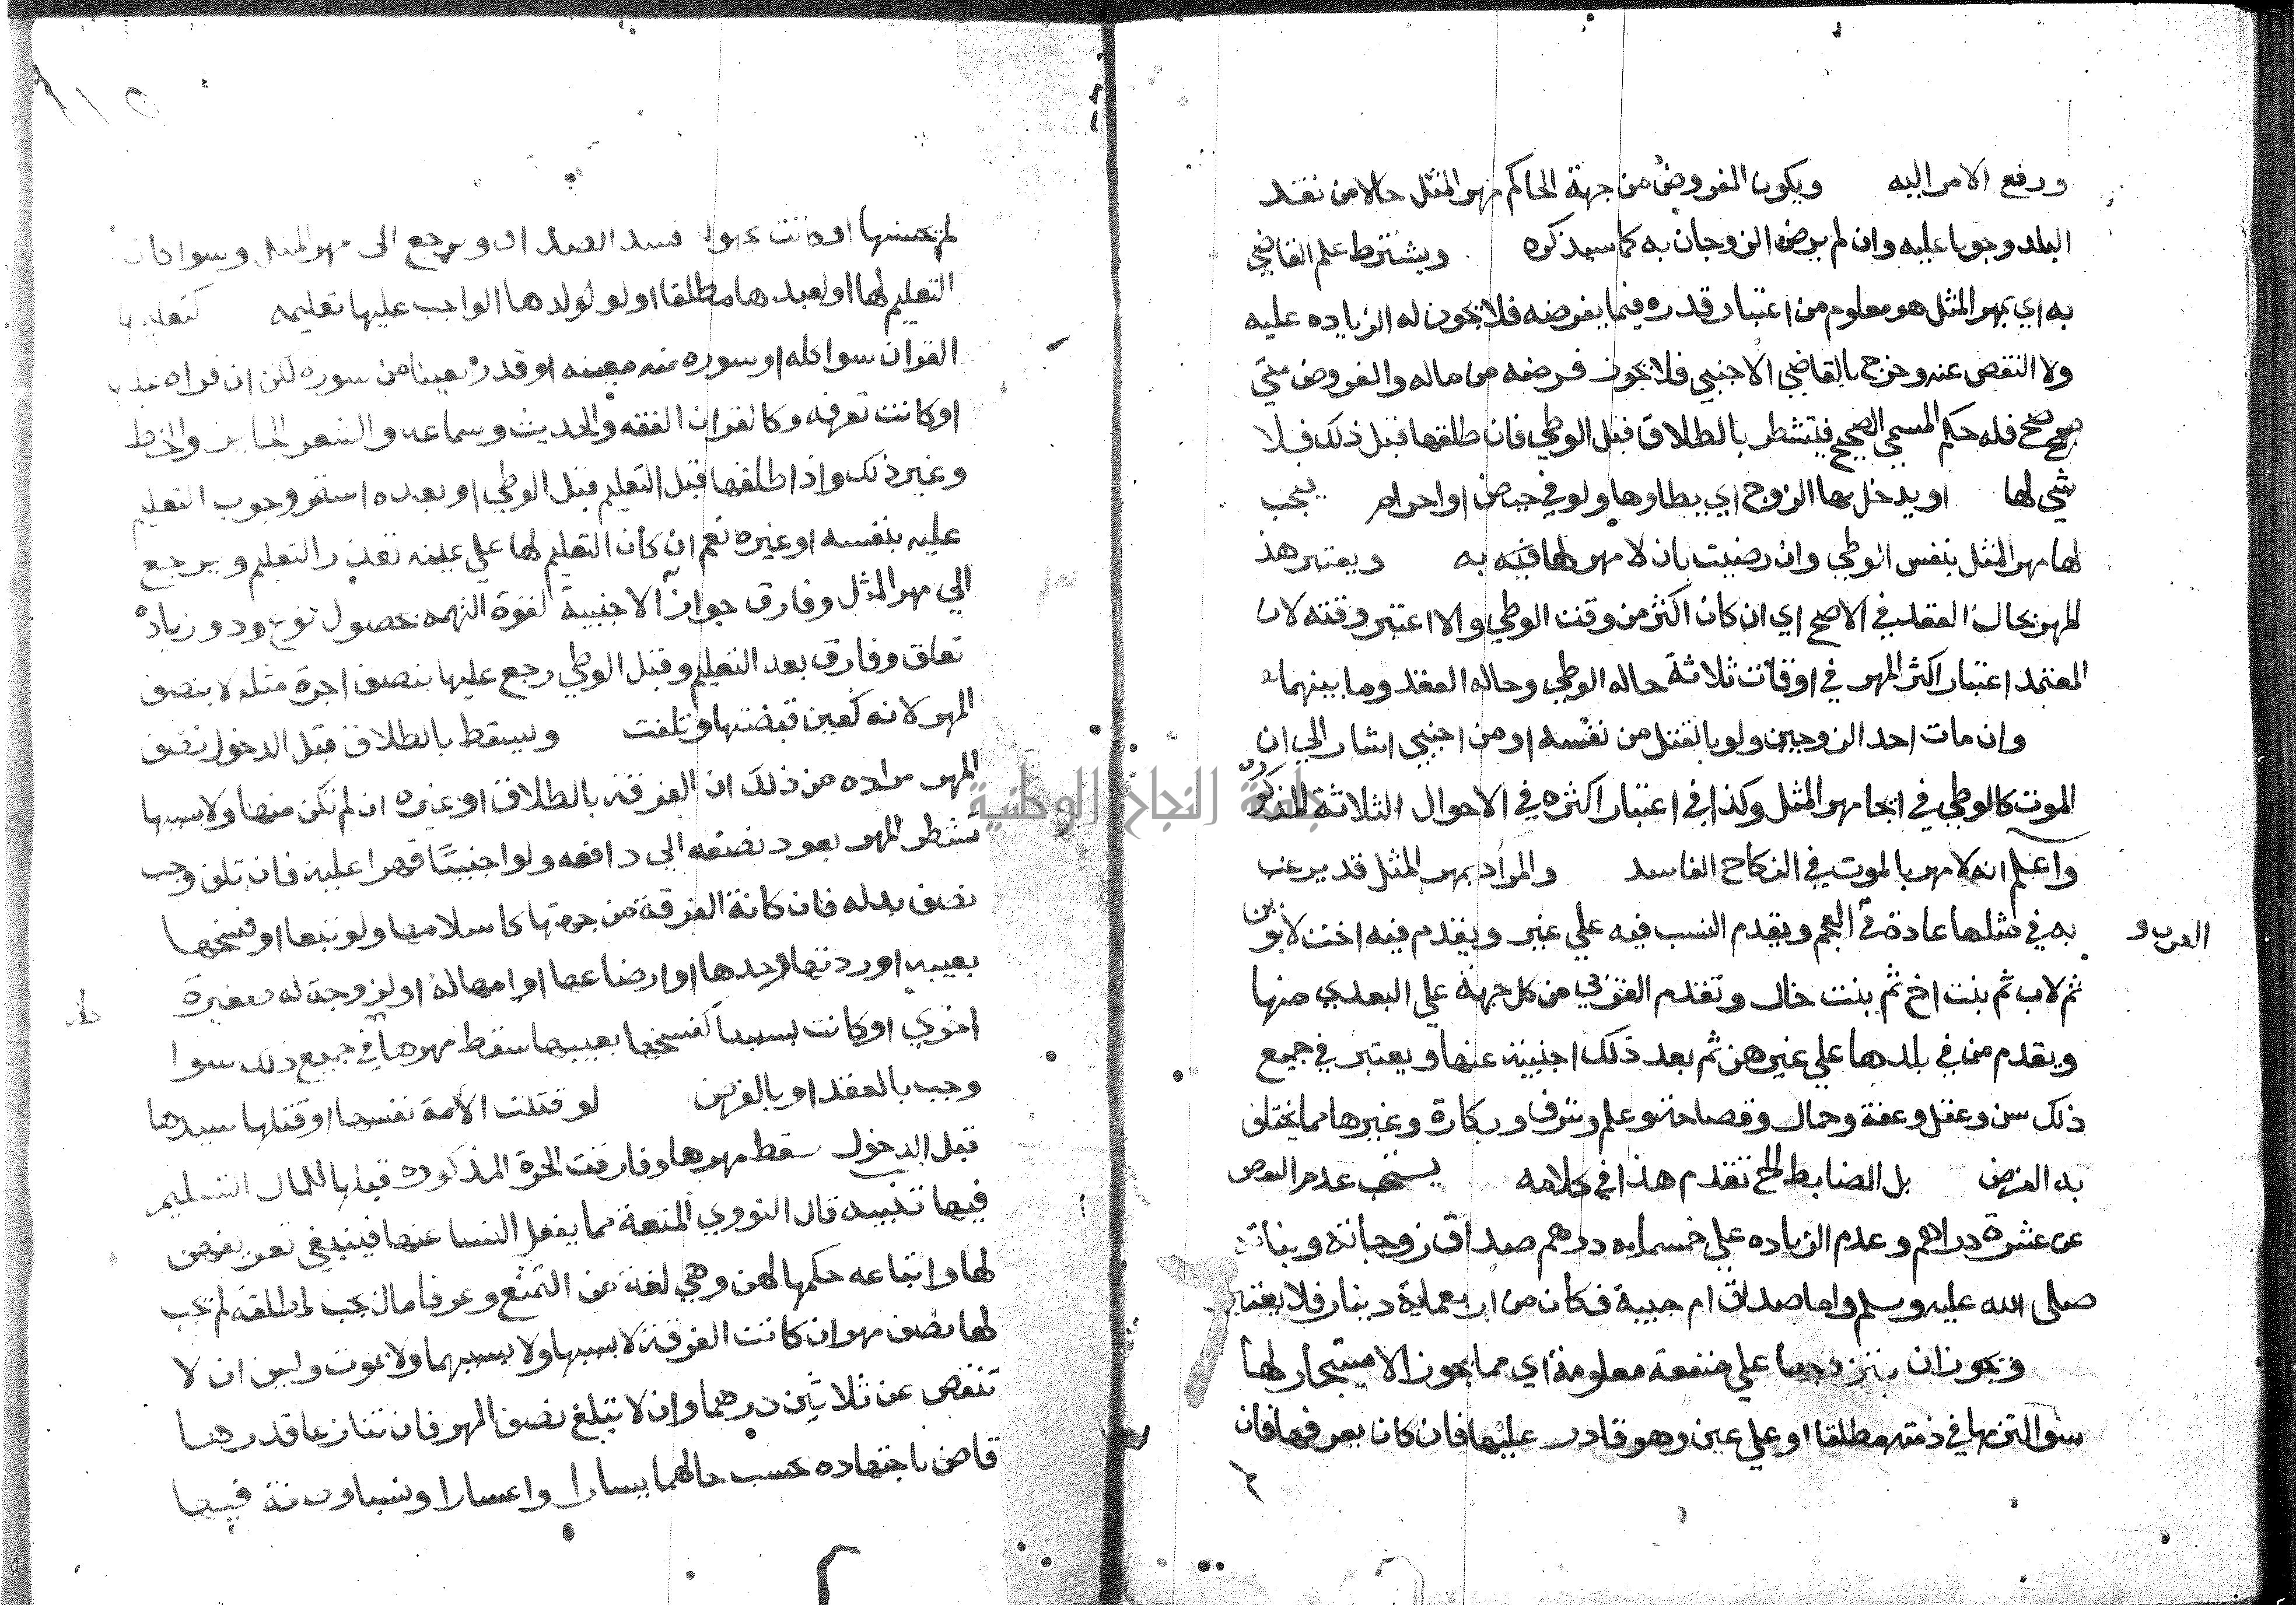 ورفع الامر اليه ويكون المفروض من جهة الحاكم مهر المثل حالا من نقد
البلد وجوبا عليه وان لم يرض الزوجان به كما سيذكره ويشترط علم القاضي
به اي بمهر المثل هو معلوم من اعتبار قدره فيما يفرضه فلا يجوز له الزياده عليه
ولا النقص عنه وخرج بالقاضي الاجنبي فلا يجوز فرضه من ماله والمفروض متي
صح فله حكم المسمي الصحيح فيتشطر بالطلاق قبل الوطي فان طلقها قبل ذلك فلا
شي لها او يدخل بها الزوج اي يطاوها ولو في حيض او احرام يجب
لها مهر المثل بنفس الوطي وان رضيت بان لا مهر لها فيه به ويعتبر هذ
المهر بحال العقد في الاصح اي ان كان اكثر من وقت الوطي والا اعتبر وقته لان
المعتمد اعتبار اكثر المهر في اوقات ثلاثة حاله الوطي وحاله العقد وما بينهما
وان مات احد الزوجين ولو بالقتل من نفسه او من اجنبي اشار الي ان
الموت كالوطي في ايجا مهر المثل وكذا في اعتبار اكثره في الاحوال الثلاثة المذكور
واعلم انه لا مهر بالموت في النكاح الفاسد والمراد بمهر المثل قد يرغب
به في مثلها عادة في العجم ويقدم النسب فيه علي غير ويقدم فيه اخت لابوين
العرب و
ثم لاب ثم بنت اخ ثم بنت خال وتقدم القربي من كل جهة علي البعدي منها
ويقدم من في بلدها علي غيرهن ثم بعد ذلك اجنبية عنها ويعتبر في جميع
ذلك سن وعقل وعفة وجمال وفصاحة وعلم وشرف وبكارة وغيرها مما يختلف
به الغرض بل الضابط الخ تقدم هذا في كلامه يستحب عدم النقص
عن عشرة دراهم وعدم الزياده علي خمسمايه درهم صداق زوجاته وبناته
صلي الله عليه وسلم واما صداق ام حبيبة فكان من اربعماية دينار فلا يعتبر
ويجوز ان يتزوجها علي منفعة معلومة اي مما يجوز الاستيجار لها
سوا التزمها في ذمته مطلقا او علي عين وهو قادر عليها فان كان يعرفها فان
لم يحسنها او كانت فسد الصداق ويرجع الى مهر المثل وسوا كان
التعليم لها او لعبدها مطلقا او لو لولدها الواجب عليها تعليمه كتعليمها
القران سوا كله او سوره منه معينه او قدر معينا من سوره لكن ان قراه
او كانت تعرفه وكالقران الفقه والحديث وسماعه والشعر الجايز والخط
وغير ذلك واذا طلقها قبل التعليم قبل الوطي او بعده استقر وجوب التعليم
عليه بنفسه او غيره نعم ان كان التعليم لها علي عينه تعذر التعليم ويرجع
الي مهر المثل وفارق جواز الاجنبية لقوة التهمه بحصول نوع ود وزيادة
تعلق وفارق بعد التعليم وقبل الوطي رجع عليها بنصف اجرة مثله لا بنصف
المهر لانه كعين قبضتها وتلفت ويسقط بالطلاق قبل الدخول نصف
المهر مراده من ذلك ان الفرقة بالطلاق او غيره ان لم تكن منها ولا بسببها
شطر المهر يعود نصفه الي دافعه ولو اجنبيًا قهرا عليه فان تلف وجب
نصف بدله فان كانة الفرقة من جهتها كاسلامها ولو تبعا او فسخها
بعيبه او ردتها وحدها او ارضاعها او امها له او لزوجة له صغيرة
اخري او كانت بسببها كفسخها بعيبها سقط مهرها في جميع ذلك سوا
وجب بالعقد او بالفرض لو قتلت الامة نفسها او قتلها سيدها
قبل الدخول سقط مهرها وفارقت الحرة المذكوره قبلها لكمال التسليم
فيها تنبيه قال النووي المتعة مما يغفل النسا عنها فينبغي
لها واشاعه حكمها لهن وهي لغة من التمتع وعرفا مال يجب لمطلقة لم يجب
لها نصف مهر ان كانت الفرقة لا بسببها ولا بسببهما ولا بموت وليس ان لا
تنقص عن ثلاثين درهما وان لا تبلغ نصف المهر فان تنازعا قدرها
قاض باجتهاده بحسب حالهما يسارا واعسارا فيها
جامعة النجاح الوطنية